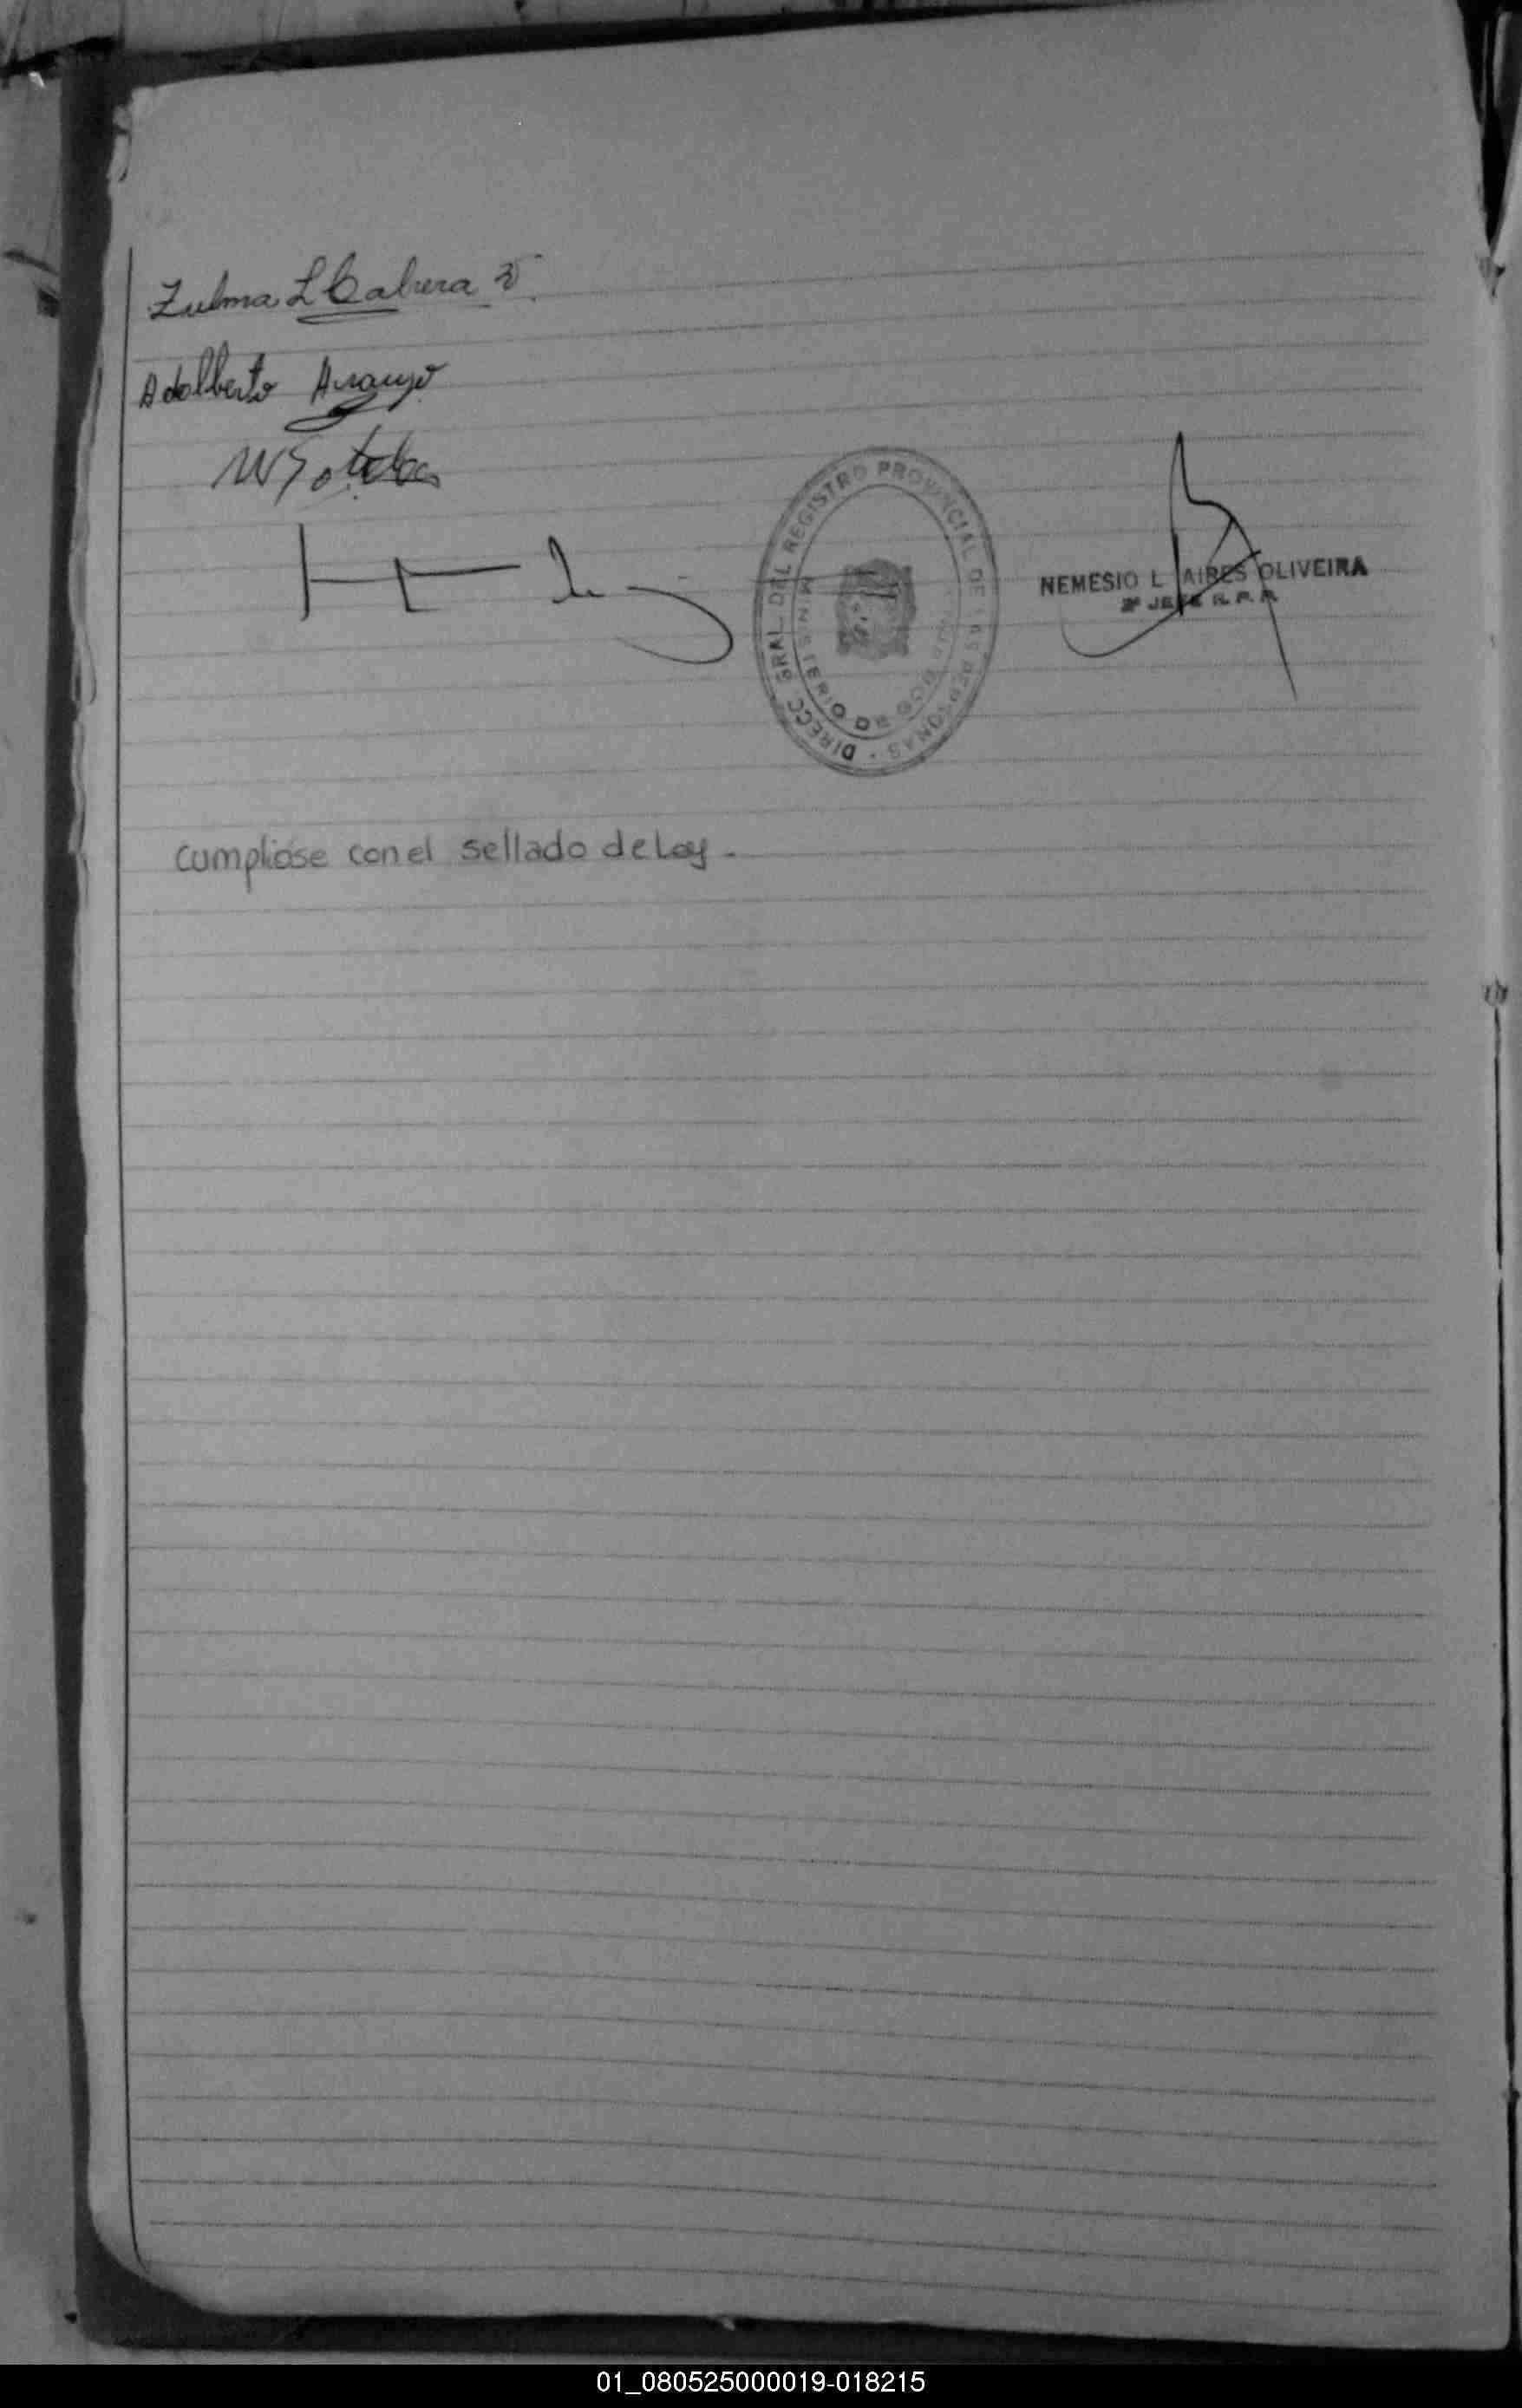 Zulma L Cabrera
Adalberto Araujo
DIRECC. GRAL. DEL REGISTRO PROVINCIAL DE LAS PERSONAS
MINISTERIO DE GOB
NEMESIO L AIRES OLIVEIRA
2º JEFE R. P. P.
cumpliose con el sellado de Ley.-
01_080525000019-018215